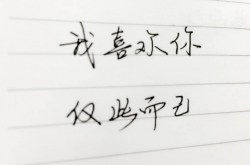 我喜欢你
仅此而已